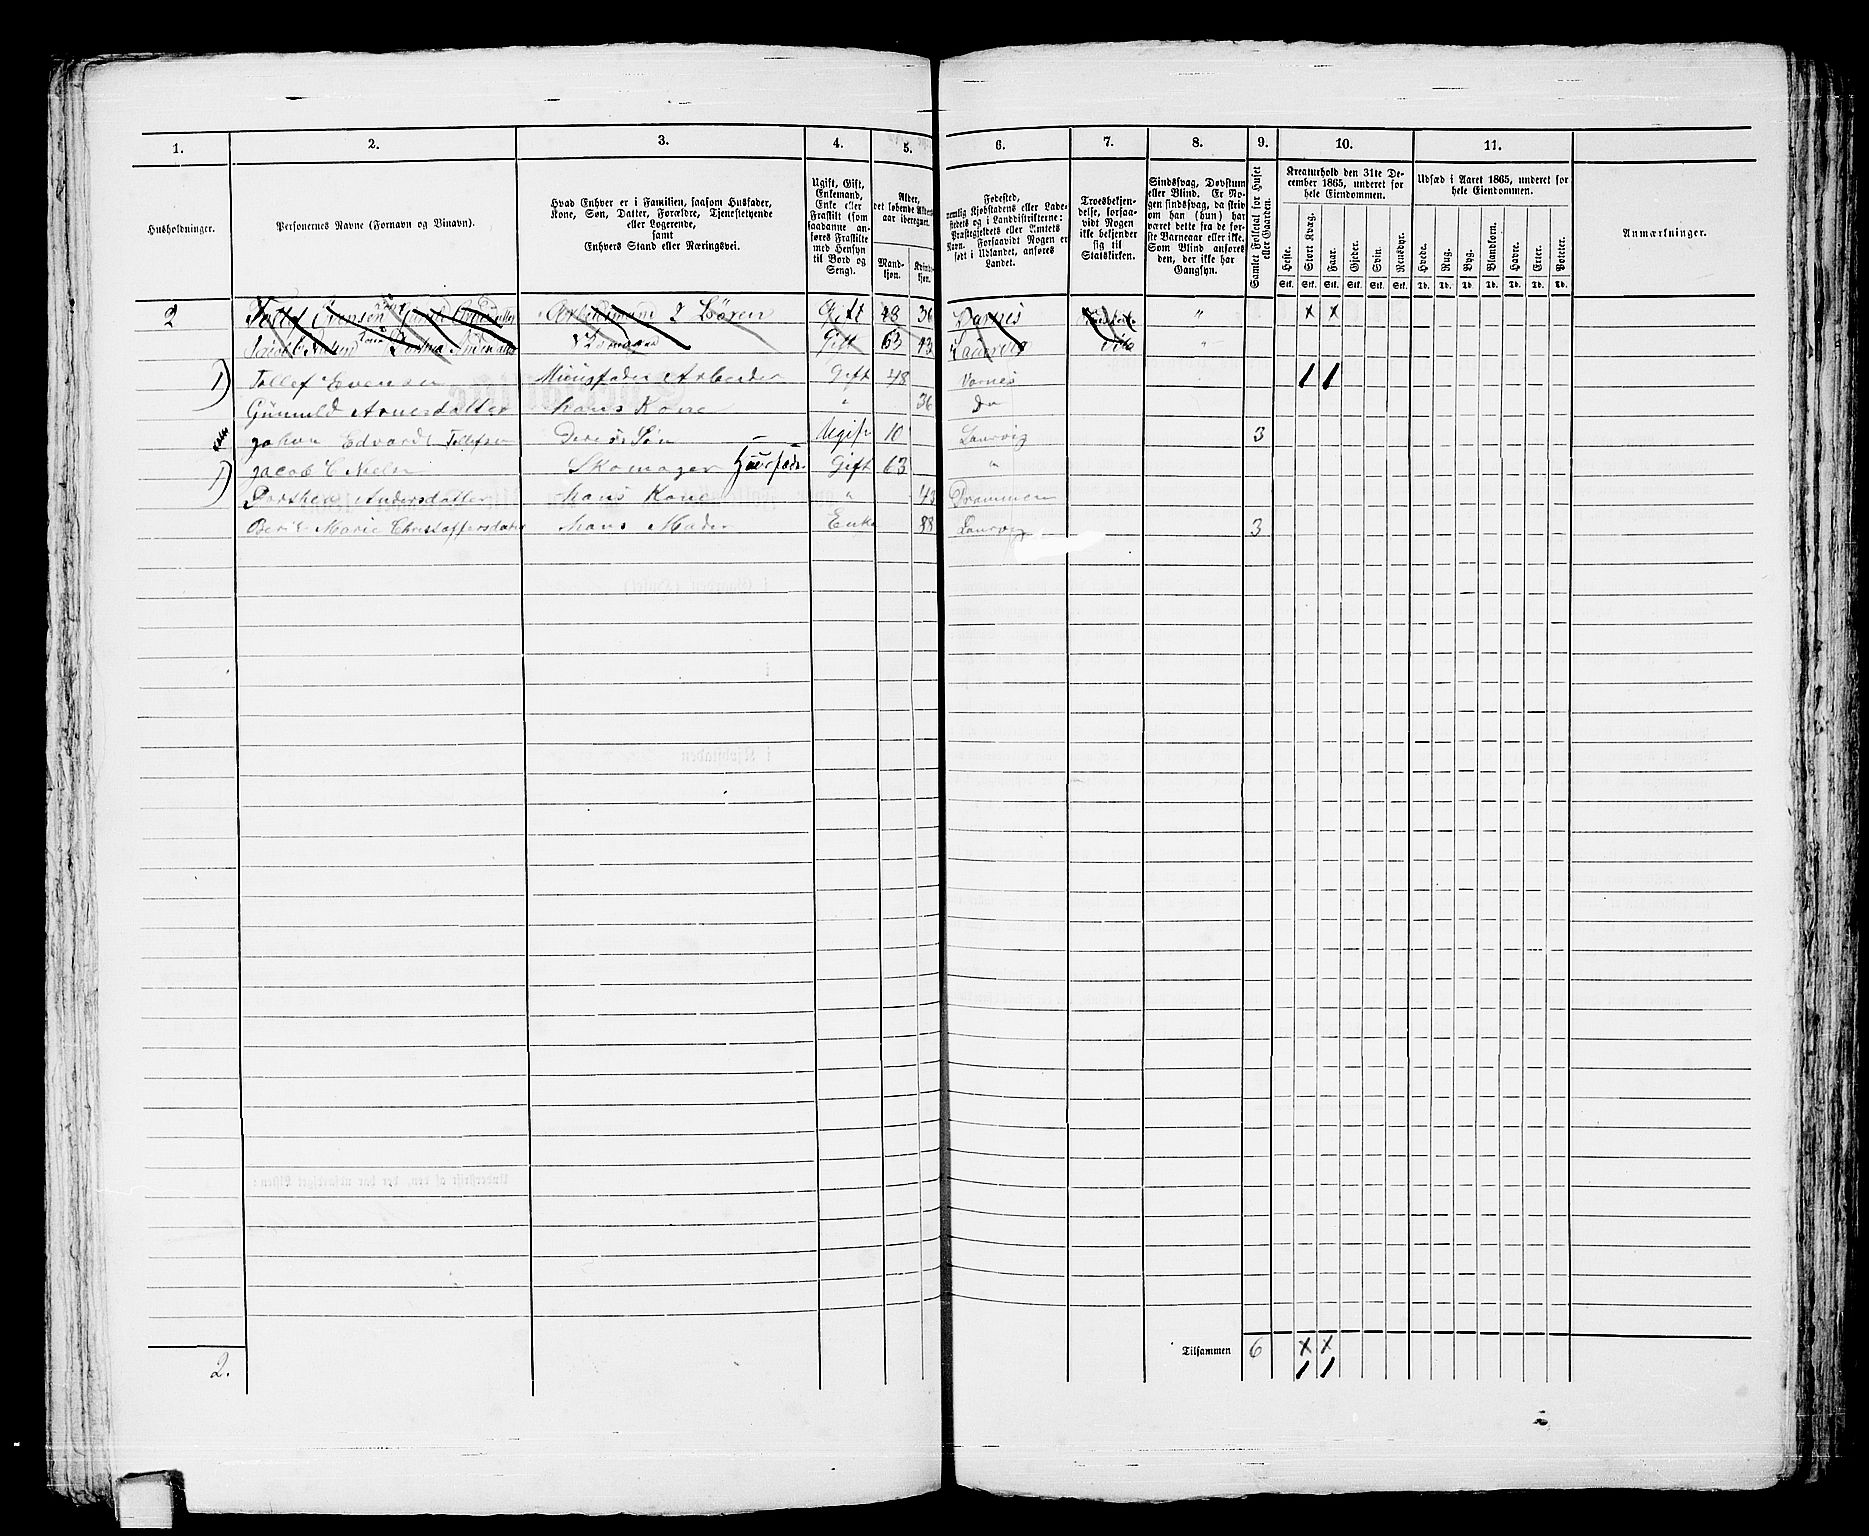 1. 2. 3. 4. 5. 6. 7. 8. 9. 10. 11.
Husholdninger.
Personernes Navne (Fornavn og Vinavn).
Hvad Enhver er i Familien, saasom Husfader,
Kone, Søn, Datter, Forældre, Tjenestetyende
eller Logerende,
samt
Enhvers Stand eller Næringsvei.
Ugift, Gift,
Enkemand,
Enke eller
Fraskilt (som
saadanne an-
føres Fraskilte
med Hensyn
til Bord og
Seng).
Alder,
det løbende Alders-
aar iberegnet.
Mand-
kjøn.
Kvinde-
kjøn.
Fødested,
nemlig Kjøbstadens eller Lade-
stedets og i Landdistrikterne:
Præstegjeldets eller Amtets
Navn. Forsaavidt Nogen er
født i Udlandet, anføres
Landet.
Troesbekjen-
delse, forsaa-
vidt Nogen
ikke bekjender
sig til
Statskirken.
Sindssvag, Døvstum
eller Blind. Er No-
gen sindssvag, da skriv
om han (hun) har
været dette fra de for-
ste Barneaar eller ikke.
Som Blind anføres
den, der ikke har
Gangsyn.
Samlet Folketal for Huset
eller Gaarden.
Kreaturhold den 31te De-
cember 1865, underet for
hele Eiendommen.
Heste. Stort Kvæg. Faar. Gjeder. Svin. Rensdyr.
Stk. Stk. Stk. Stk. Stk. Stk.
Udsæd i Aaret 1865, underet for
hele Eiendommen.
Hvede. Rug. Byg. Blandkorn. Havre. Erter. Poteter.
Td. Td. Td. Td. Td. Td. Td.
Anmærkninger.
2 Tollef Evensen Gift 48 36 Varnes " x x
Jacob C Nielsen Gift 63 43 Laurvig "
1) Tollef Evensen Huusfader Arbeider Gift 48 Varnes 1 1
Gunnild Arnesdatter hans Kone " 36 Do
Johan Edvard Tollefsen Deres Søn – Ugift 10 Laurvig 3
1) Jacob C Nielsen Skomager Huusfader Gift 63 "
Dorthea Andersdatter hans Kone " 43 Drammen
Marie Christoffersdatter hans Moder Enke 88 Laurvig 3
Tilsammen 6 x x
1 1
2.